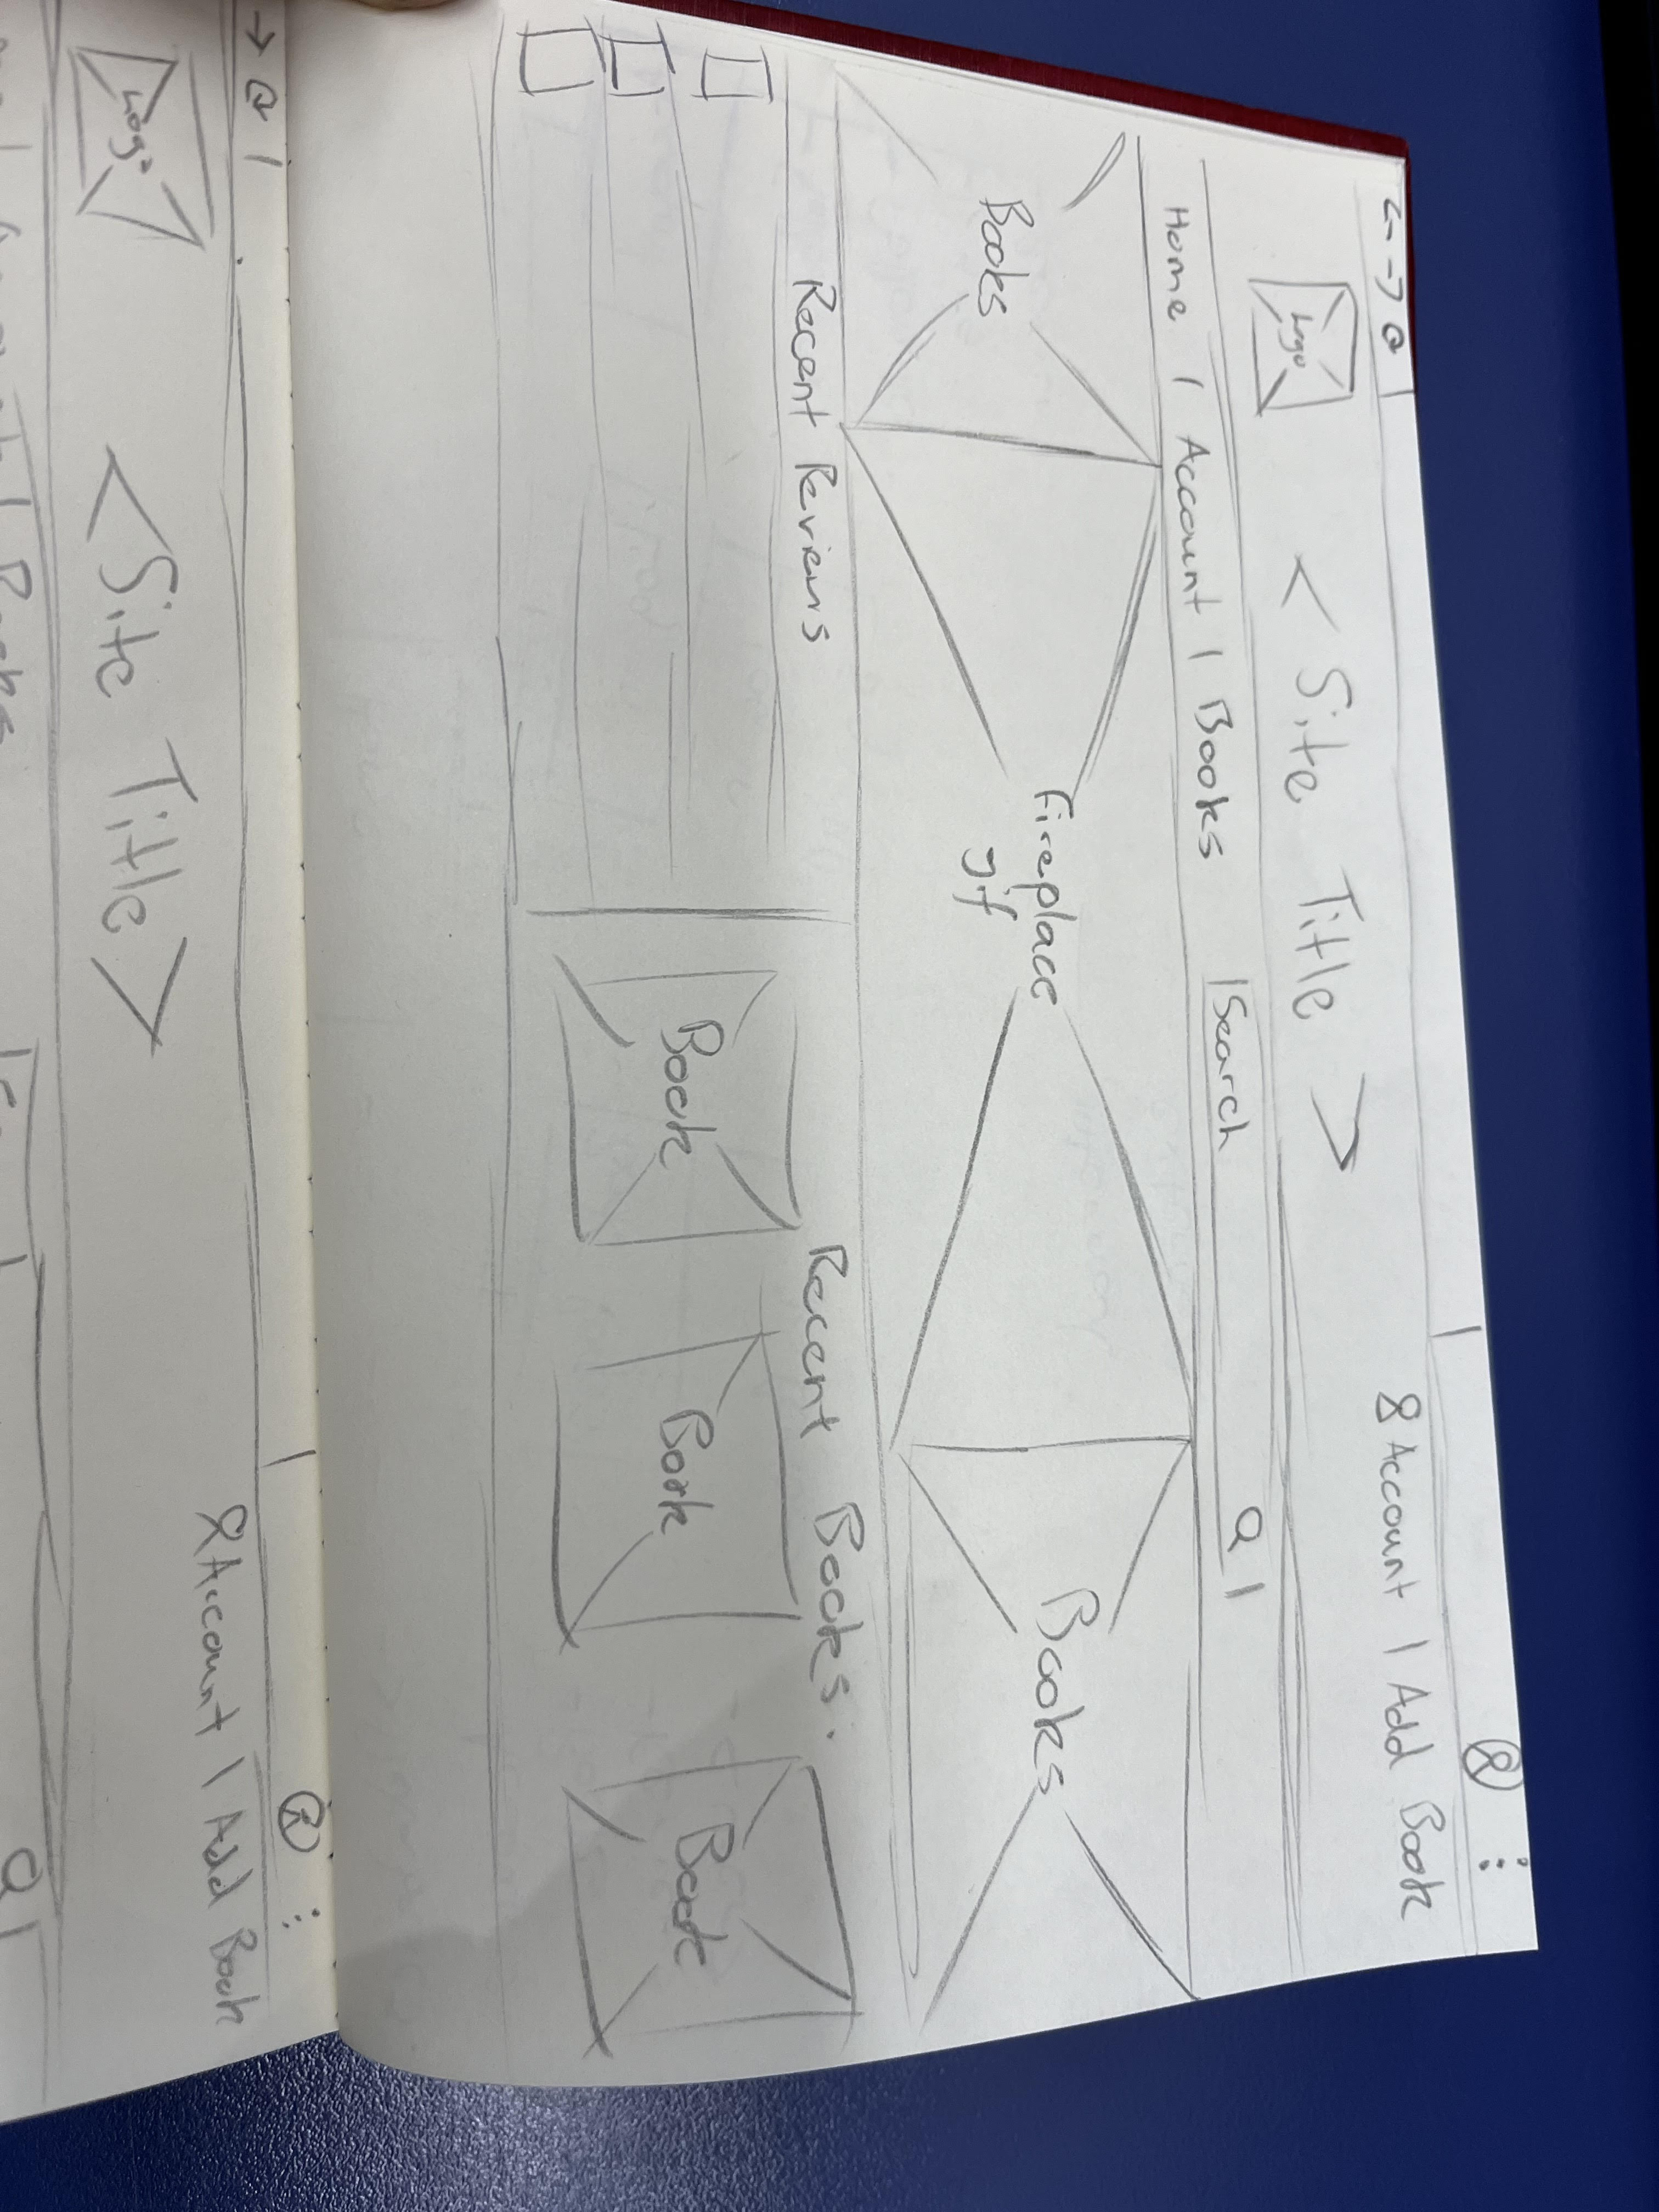 Logo
< Site Title >
Account | Add Book
Home | Account | Books
Search
Books
Fireplace
gif
Books
Recent Reviews
Recent Books.
Book
Book
Book
Account | Add Book
Logo
<Site Title>